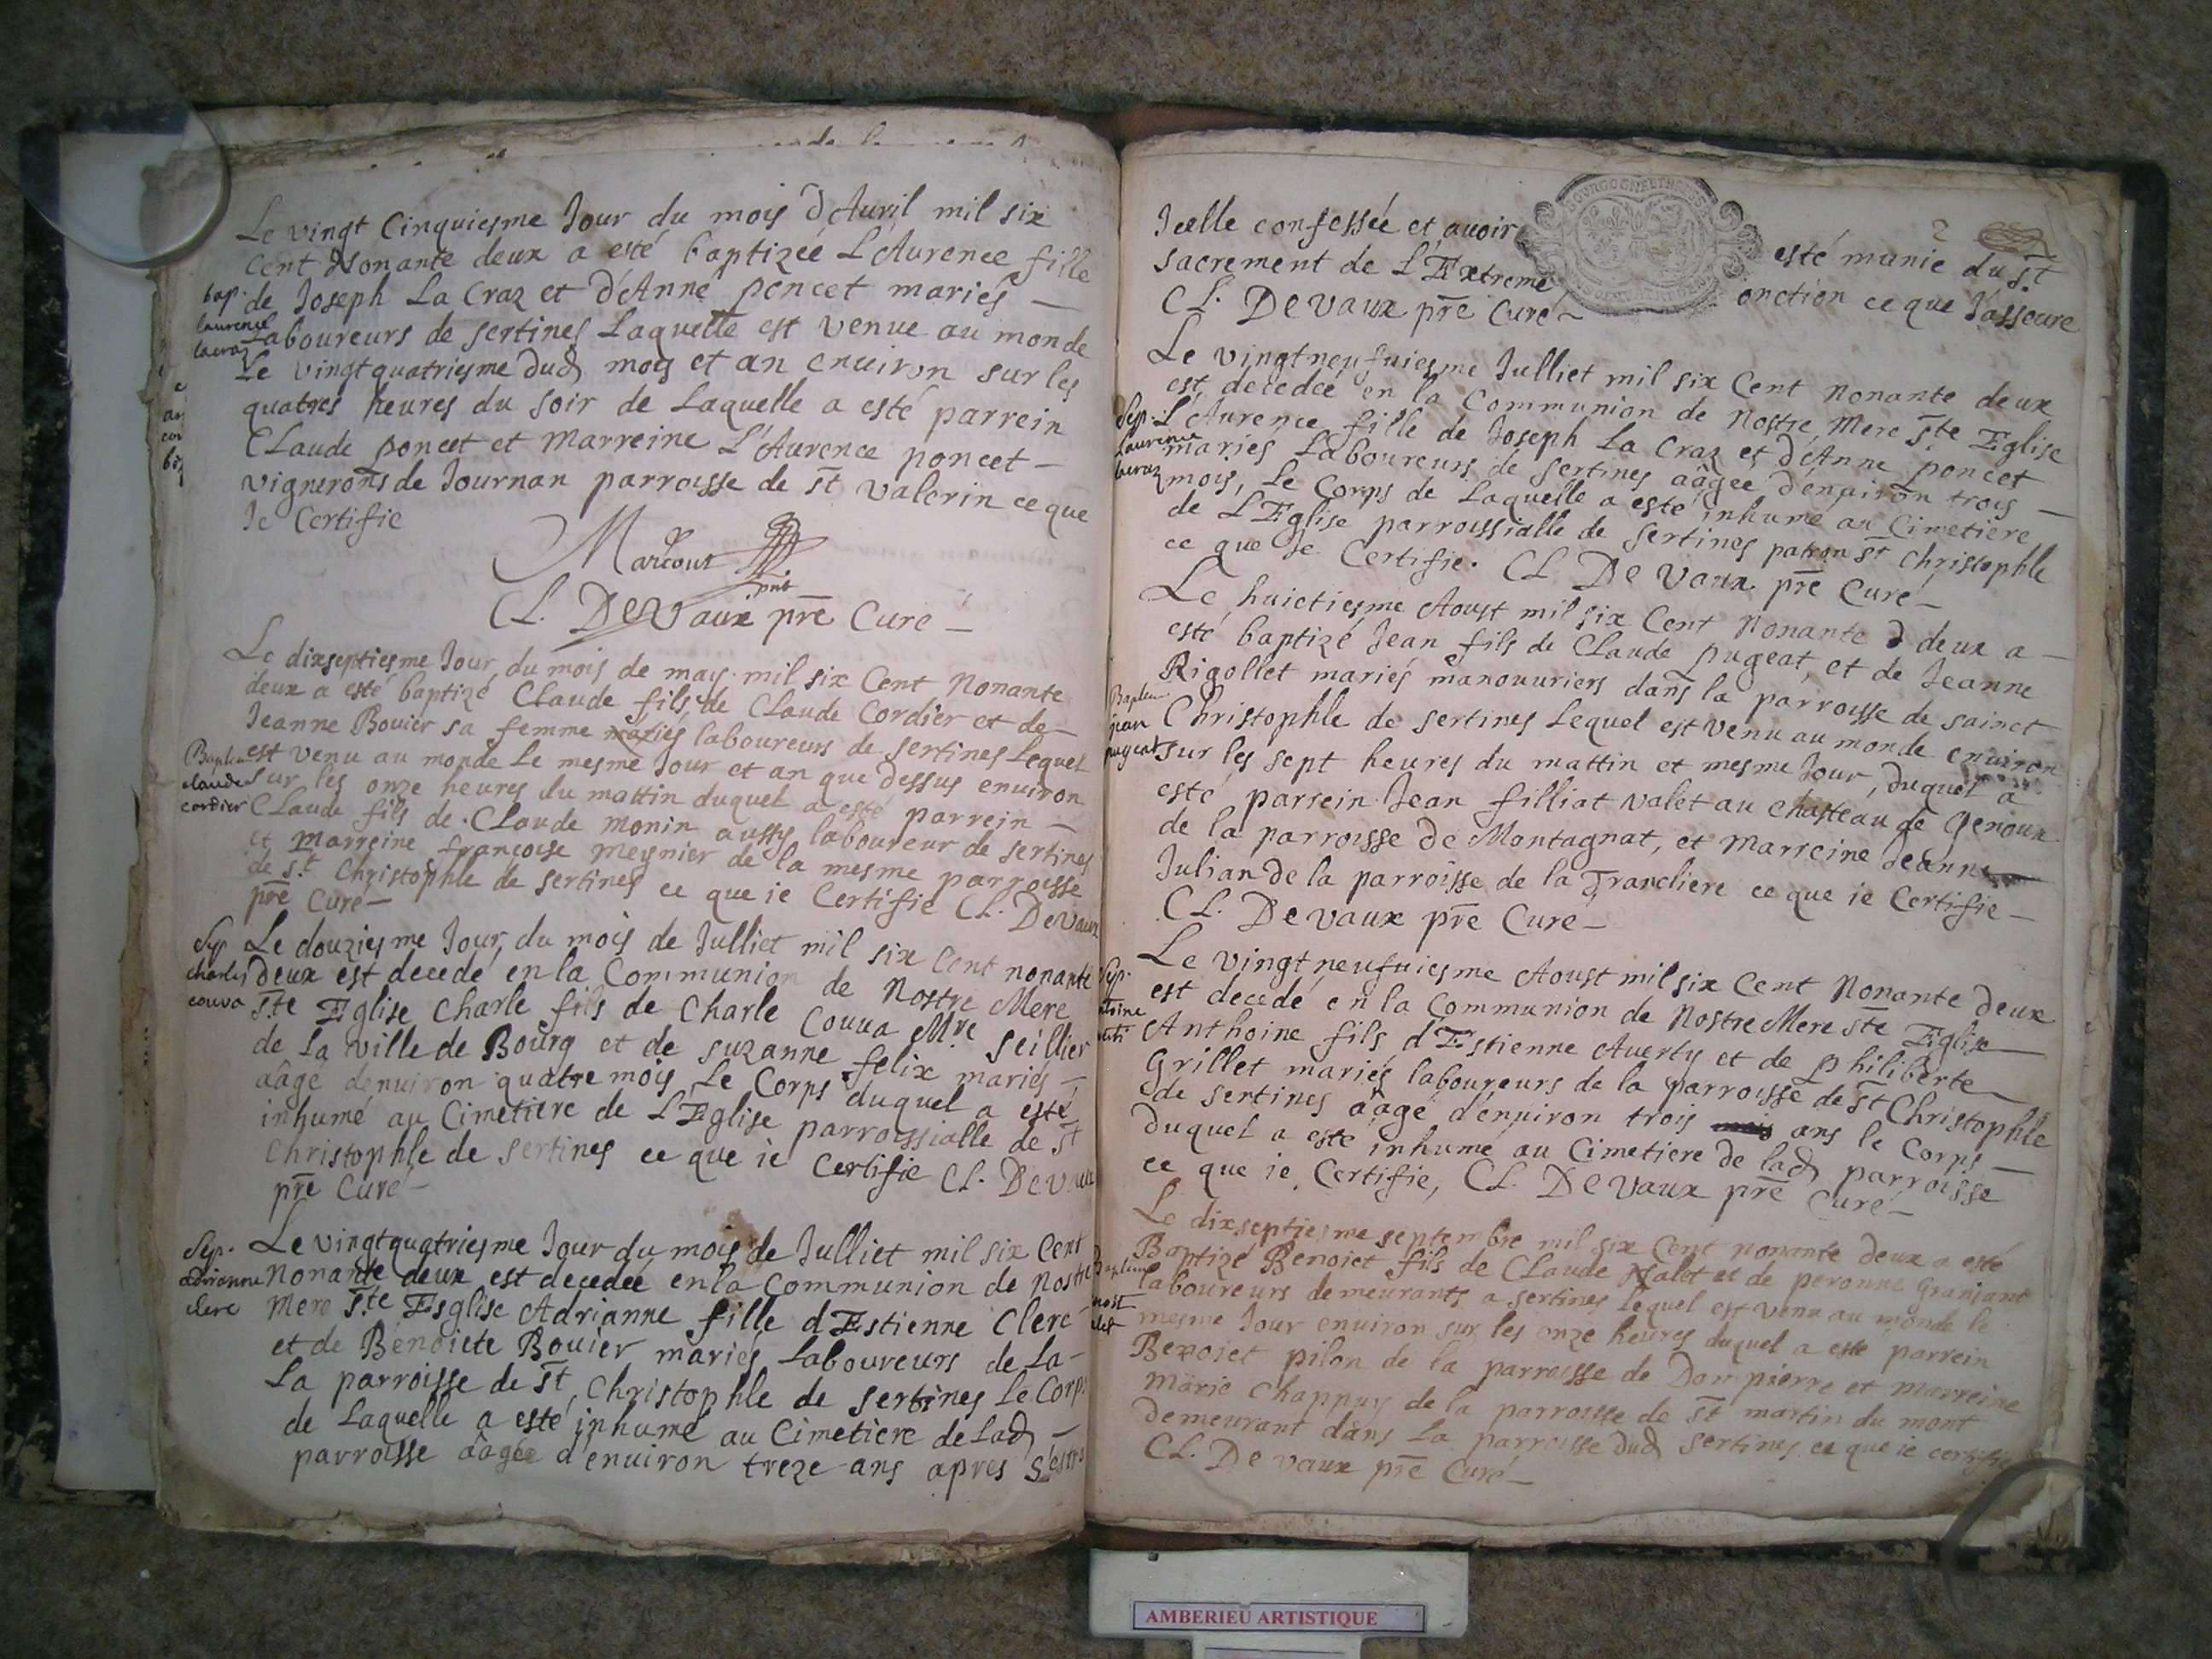 Le vingt Cinquiesme Jour du mois dAuril mil six
Cent Nonante deux a esté baptizée L'Aurence fille
bap. de Joseph La Craz et d'Anne poncet mariés —
laurence
lacraz
Laboureurs de sertines Laquelle est venue au monde
Le vingtquatriesme dud mois et an enuiron sur les
quatres heures du soir de Laquelle a esté parrein
CLaude poncet et Marreine L'Aurence poncet —
vignerons de Journan parroisse de st valerin ce que
Je Certifie
CL. DeVaux pre Curé —
Le dixseptiesme Jour du mois de may mil six Cent Nonante
deux a esté baptizé CLaude fils de CLaude Cordier et de —
Jeanne Bouier sa femme mariés laboureurs de sertines Lequel
Baptem
claude
cordier
est venu au monde Le mesme Jour et an que dessus enuiron
sur les onze heures du mattin duquel a esté parrein —
CLaude fils de CLaude Monin aussy laboureur de sertines
et marreine francoise Meynier de la mesme parroisse
de st Christophle de sertines ce que ie Certifie CL. Devaux
pre Curé —
Sep
charles
couva
Le douziesme Jour du mois de Julliet mil six Cent nonante
deux est decedé en la Communion de Nostre Mere
ste Eglise Charle fils de Charle Couua Mre seillier
de La ville de Bourg et de suzanne felix mariés —
aâgé denuiron quatre mois Le Corps duquel a esté
inhumé au Cimetiere de L'Eglise parroissialle de st
Christophle de sertines ce que ie Certifie CL. Devaux
pre Curé —
Sep.
adrianne
clerc
Le vingtquatriesme Jour du mois de Julliet mil six Cent
Nonante deux est decedée en la Communion de Nostre
Mere ste Esglise Adrianne fille d'Estienne Clerc
et de Benoiete Bouier mariés Laboureurs de La —
La parroisse de st Christophle de sertines Le Corps
de Laquelle a esté inhumé au Cimetiere de Lad —
parroisse aâgée d'enuiron treze ans apres
2
Jcelle confessée et auoir esté munie du st
sacrement de L'Extreme onction ce que J'asseure
CL. Devaux pre Curé —
Le vingtneufuiesme Julliet mil six Cent Nonante deux
est decedée en la Communion de Nostre Mere ste Eglise
Sep.
Laurence
lacraz
L'Aurence fille de Joseph La Craz et d'Anne poncet
mariés Laboureurs de sertines aâgée d'enuiron trois —
mois, Le Corps de Laquelle a esté inhumé au Cimetiere
de L'Eglise parroissialle de sertines patron st Christophle
ce que Je Certifie. CL. Devaux pre Curé —
Le huictiesme Aoust mil six Cent Nonante deux a —
esté baptizé Jean fils de CLaude pugeat, et de Jeanne
Rigollet mariés manouuriers dans la parroisse de sainct
Baptem
jean
pugeat
Christophle de sertines Lequel est venu au monde enuiron
sur les sept heures du mattin et mesme Jour, duquel a
esté parrein Jean filliat valet au chasteau de Genoux
de la parroisse de Montagnat, et marreine Jeanne
Julian de la parroisse de la Trancliere ce que ie Certifie —
CL. Devaux pre Curé —
Sep.
Le vingtneufuiesme Aoust mil six Cent Nonante deux
est decedé en la Communion de Nostre Mere ste Eglise
Anthoine fils d'Estienne Auerty et de philiberte
Grillet mariés laboureurs de la parroisse de st Christophle
de sertines aâgé d'enuiron trois ans le Corps —
duquel a esté inhumé au Cimetiere de lad parroisse
ce que ie Certifie, CL. Devaux pre Curé —
Le dixseptiesme septembre mil six Cent nonante deux a esté
Baptizé Benoiet fils de CLaude Nalet et de peronne
laboureurs demeurants a sertines lequel est venu au monde le
mesme Jour enuiron sur les onze heures duquel a esté parrein
Benoiet pilon de la parroisse de Dompierre et marreine
Marie Chappuy de la parroisse de st martin du mont
demeurant dans La parroisse dud sertines ce que ie certifie
CL. Devaux pre Curé —
AMBERIEU ARTISTIQUE